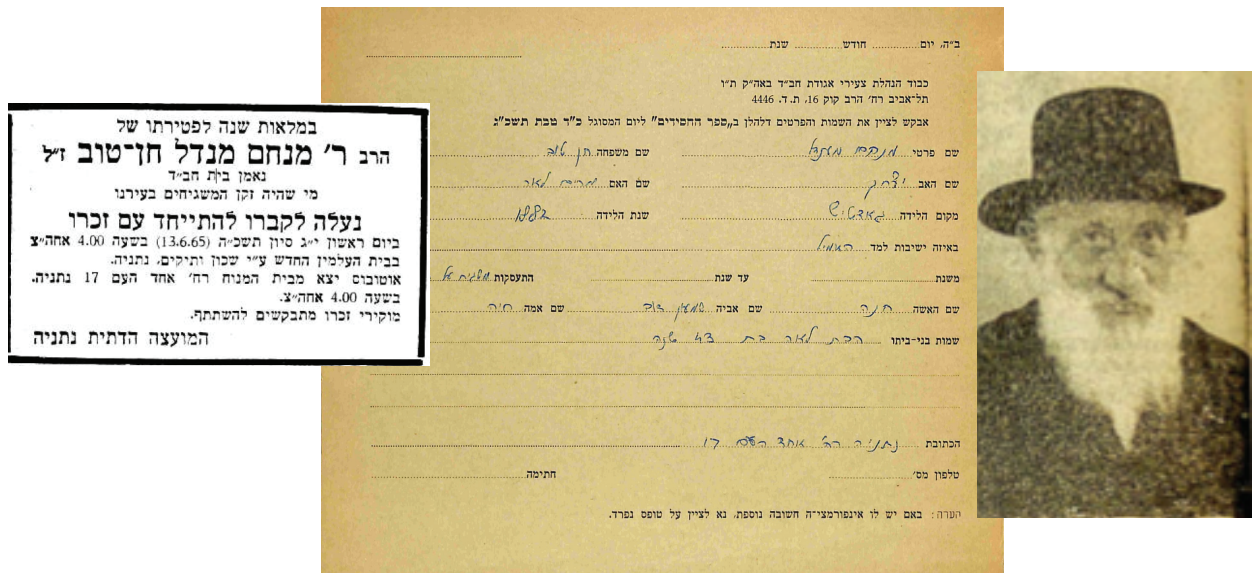 במלאות שנה לפטירתו של
הרב ר' מנחם מנדל חן־טוב ז"ל
נאמן בית חב"ד
מי שהיה זקן המשגיחים בעירנו
נעלה לקברו להתייחד עם זכרו
ביום ראשון י"ג סיון תשכ"ה (13.6.65) בשעה 4.00 אחה"צ
בבית העלמין החדש ע"י שכון ותיקים, נתניה.
אוטובוס יצא מבית המנוח רח' אחד העם 17 נתניה.
בשעה 4.00 אחה"צ.
מוקירי זכרו מתבקשים להשתתף.
המועצה הדתית נתניה
ב"ה, יום חודש שנת
כבוד הנהלת צעירי אגודת חב"ד באה"ק ת"ו
תל־אביב רח' הרב קוק 16, ת. ד. 4446
אבקש לציין את השמות והפרטים דלהלן ב„ספר החסידים" ליום המסוגל כ"ד טבת תשכ"ג
שם פרטי מנחם מענדל שם משפחה חן טוב
שם האב יצחק שם האם מרים לאה
מקום הלידה שנת הלידה 1882
באיזה ישיבות למד
משנת עד שנת התעסקות משגיח על
שם האשה חנה שם אביה שמעון דוב שם אמה חיה
שמות בני־ביתו הבת לאה בת 43 שנה
הכתובת נתניה רח' אחד העם 17
טלפון מס' חתימה
הערה: באם יש לו אינפורמצי־ה חשובה נוספת, נא לציין על טופס נפרד.